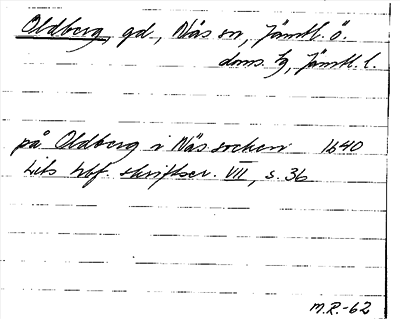 Oldberg, gd, Näs sn, Jämtl. ö.
doms. hg, Jämtl. l.
på Oldberg i Näs socken 1640
Lits hbf. skriftser. VII, s. 36
M.R.-62